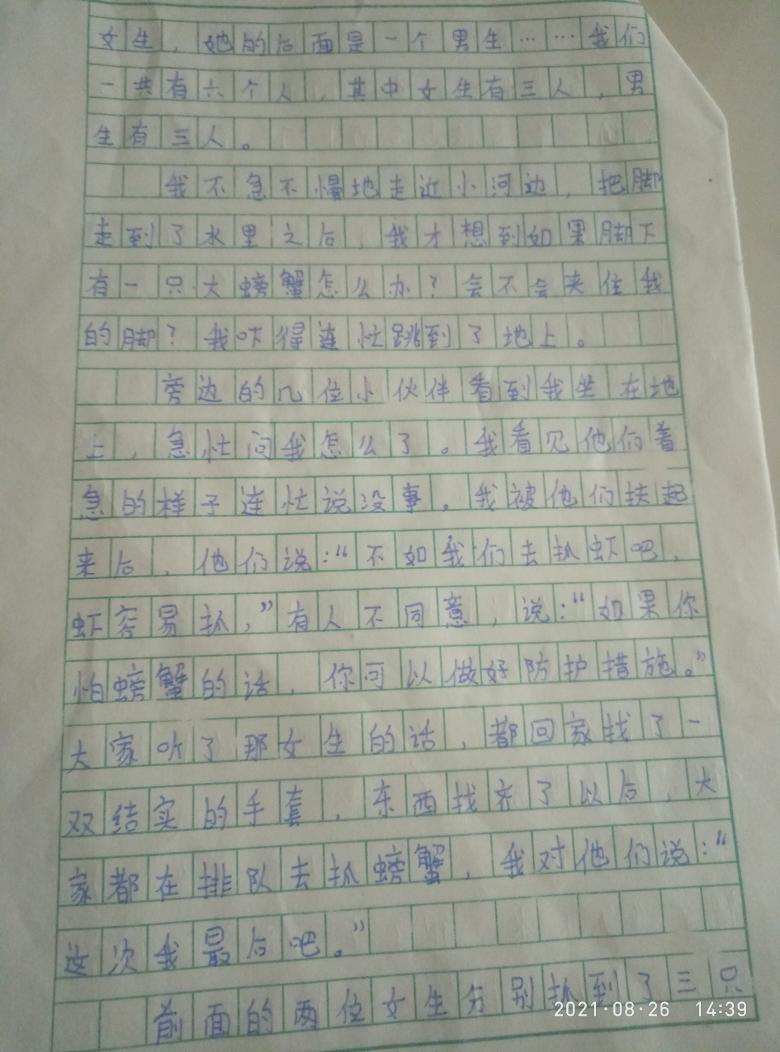 女生，她的后面是一个男生……我们
一共有六个人，其中女生有三人，男
生有三人。
我不急不慢地走近小河边，把脚
走到了水里之后，我才想到如果脚下
有一只大螃蟹怎么办？会不会夹住我
的脚？我吓得连忙跳到了地上。
旁边的几位小伙伴看到我坐在地
上，急忙问我怎么了。我看见他们着
急的样子连忙说没事。我被他们扶起
来后，他们说：“不如我们去抓虾吧，
虾容易抓，”有人不同意，说：“如果你
怕螃蟹的话，你可以做好防护措施。”
大家听了那女生的话，都回家找了一
双结实的手套，东西找齐了以后，大
家都在排队去抓螃蟹，我对他们说：“
这次我最后吧。”
前面的两位女生分别抓到了三只
2021·08·26 14:39